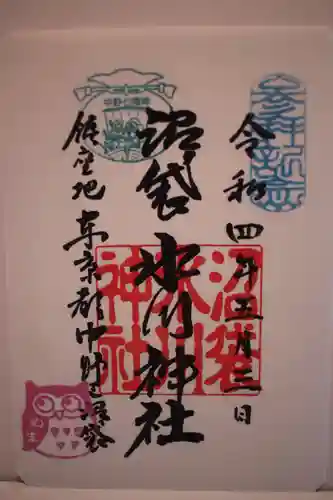 参拝記念
令和四年五月三日
沼袋氷川神社
沼袋
氷川
神社
鎮座地 東京都中野区沼袋